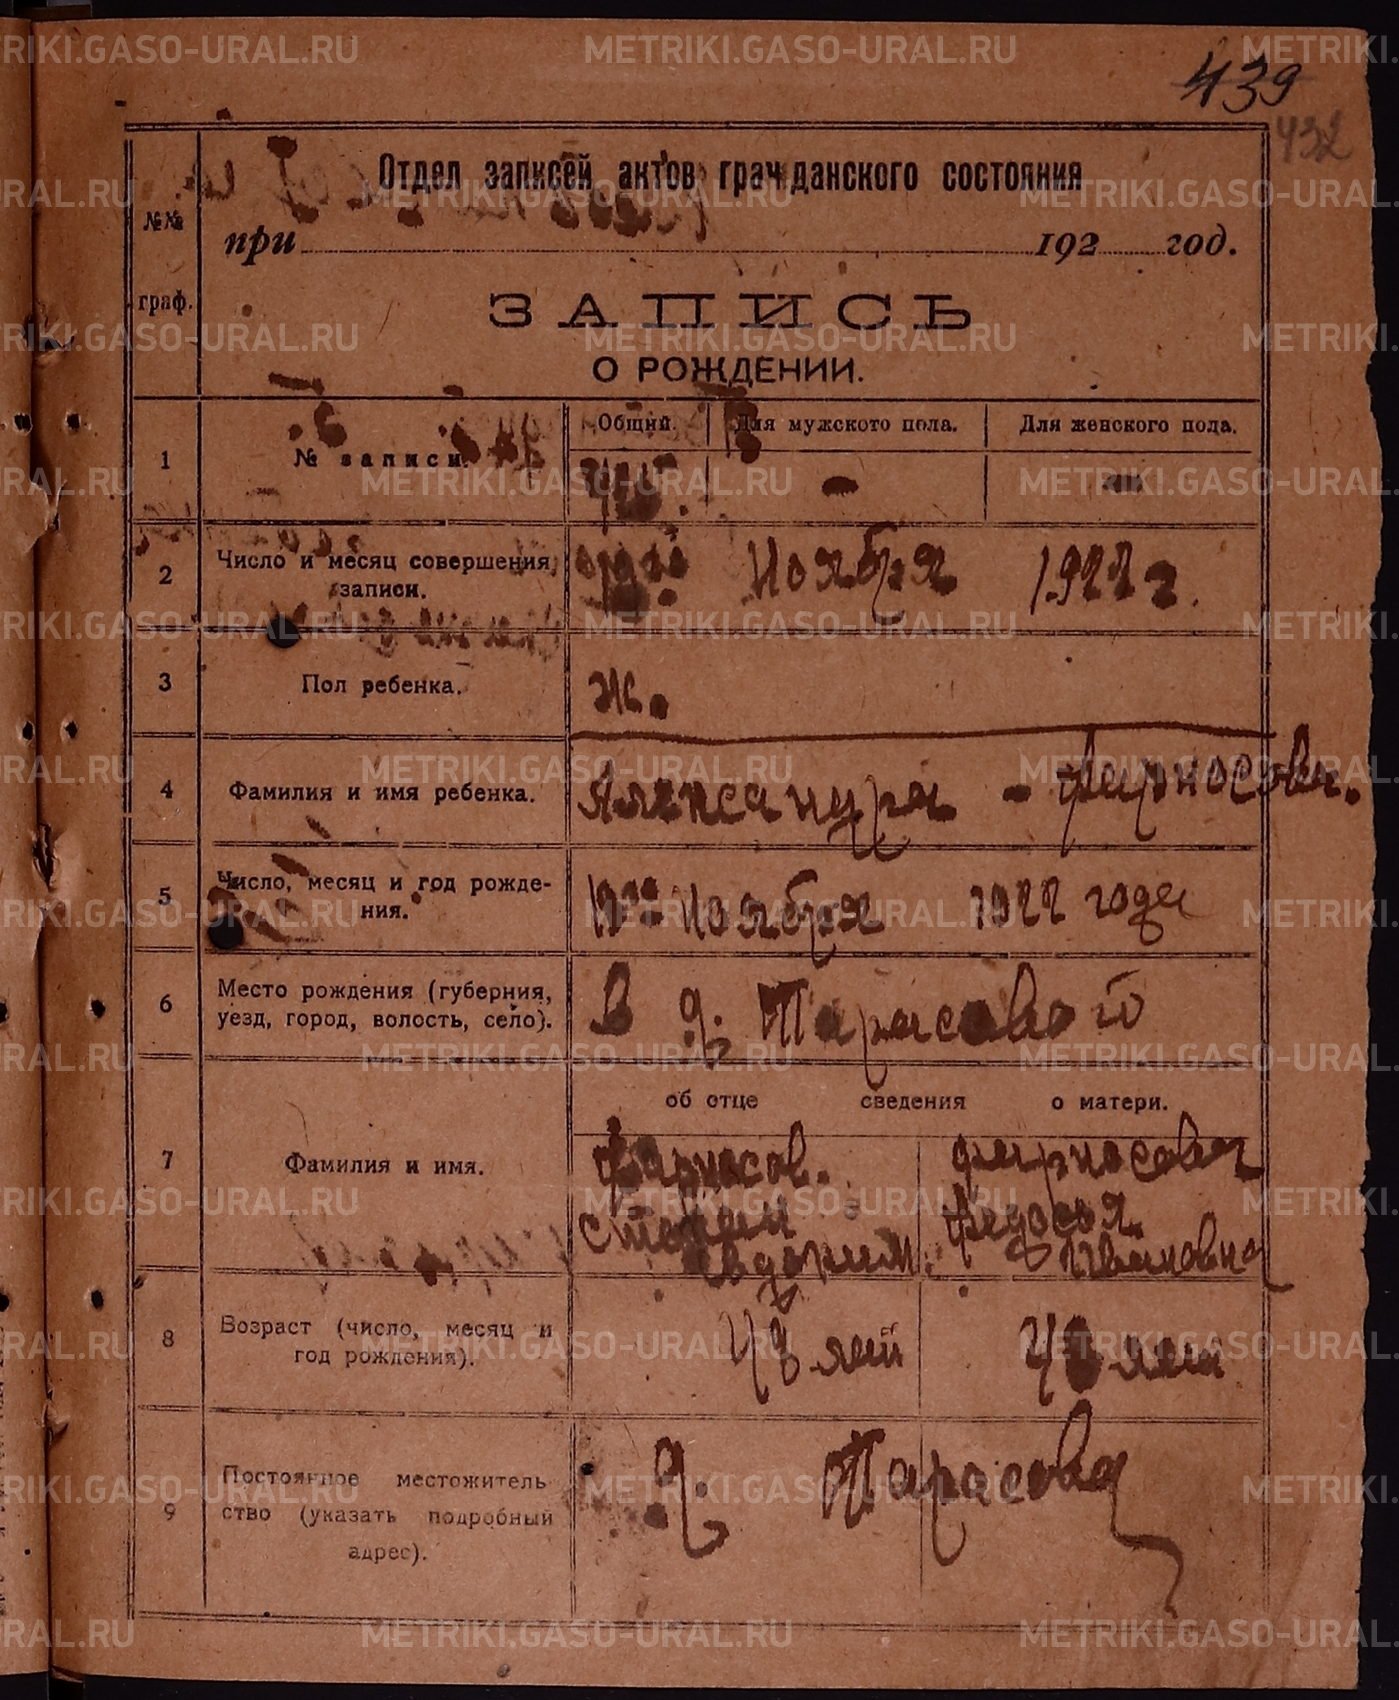 METRIKI.GASO-URAL.RU
439
432
Отдел записей актов гражданского состояния
№№ граф.
при 192 год.
ЗАПИСЬ
О РОЖДЕНИИ.
1 № записи. Общий. Для мужского пола. Для женского пола.
- -
2 Число и месяц совершения записи. Ноября 1922 г.
3 Пол ребенка. ж.
4 Фамилия и имя ребенка. Александра - Фарносова.
5 Число, месяц и год рождения. Ноября 1922 года
6 Место рождения (губерния, уезд, город, волость, село). В д. Тарасовой
об отце сведения о матери.
7 Фамилия и имя. Фарносов. Фарносова
Стефан Федосья
Евдоким. Ивановна
8 Возраст (число, месяц и год рождения). 43 лет лет
9 Постоянное местожительство (указать подробный адрес). д. Тарасова